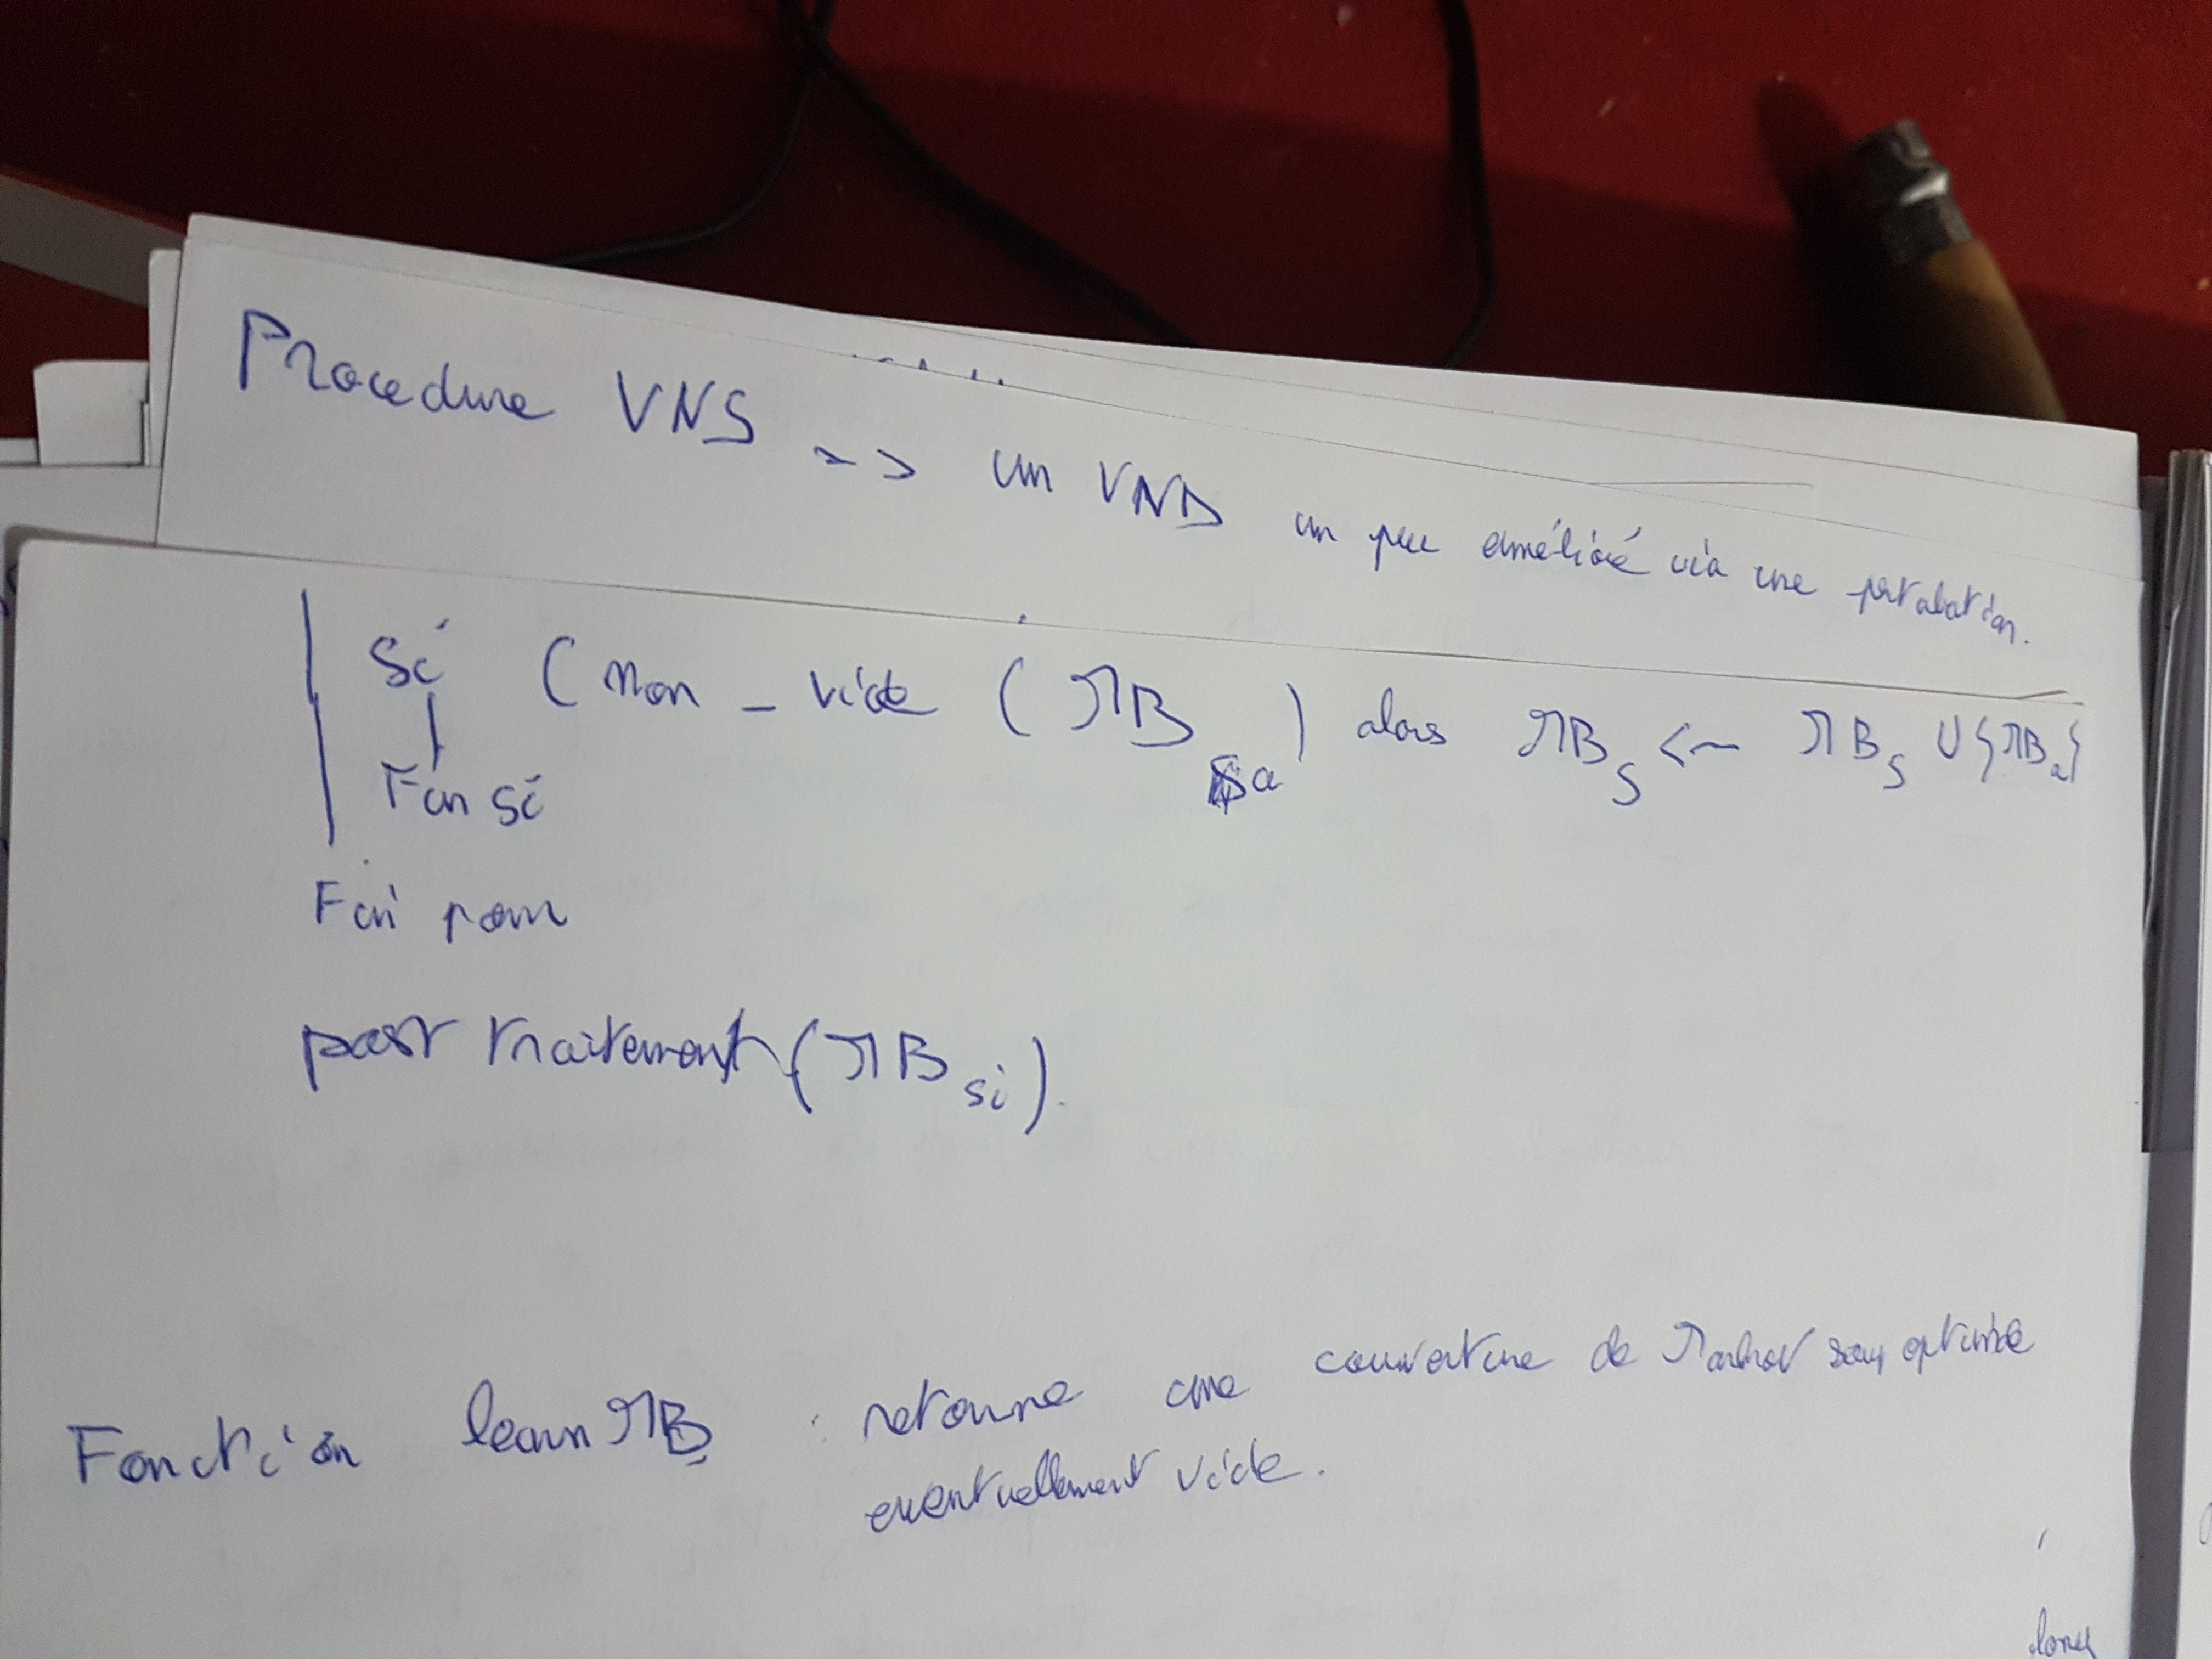 Procedure VNS => un VND un peu amélioré via une pertubation.
Si (non_vide (MB a) alors MB s <- MB s U {MB a}
Fin si
Fin pour
post traitement (MB si).
Fonction learn MB : retourne une couverture de Markov sous optimise
eventuellement vide.